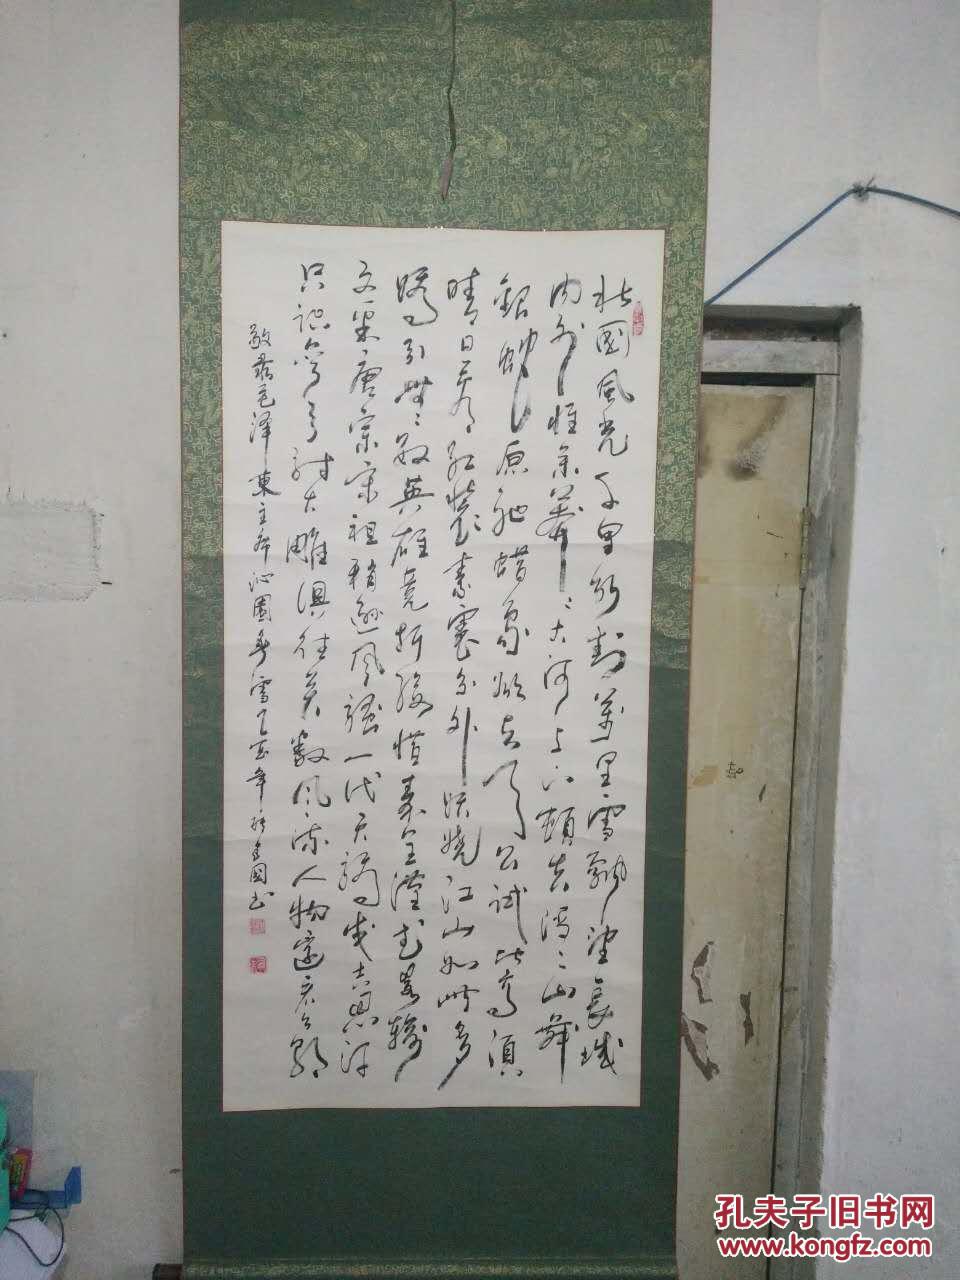 北國風光千里冰封萬里雪飘望長城
内外惟余莽〻大河上下顿失滔〻山舞
銀蛇原驰蜡象欲与天公試比高须
晴日看红装素裹分外妖娆江山如此多
嬌引無數英雄竞折腰惜秦皇漢武略输
文采唐宗宋祖稍逊風骚一代天骄成吉思汗
只识弯弓射大雕俱往矣數風流人物還看今朝
敬录毛泽東主席沁園春雪 年 國书
孔夫子旧书网
www.kongfz.com